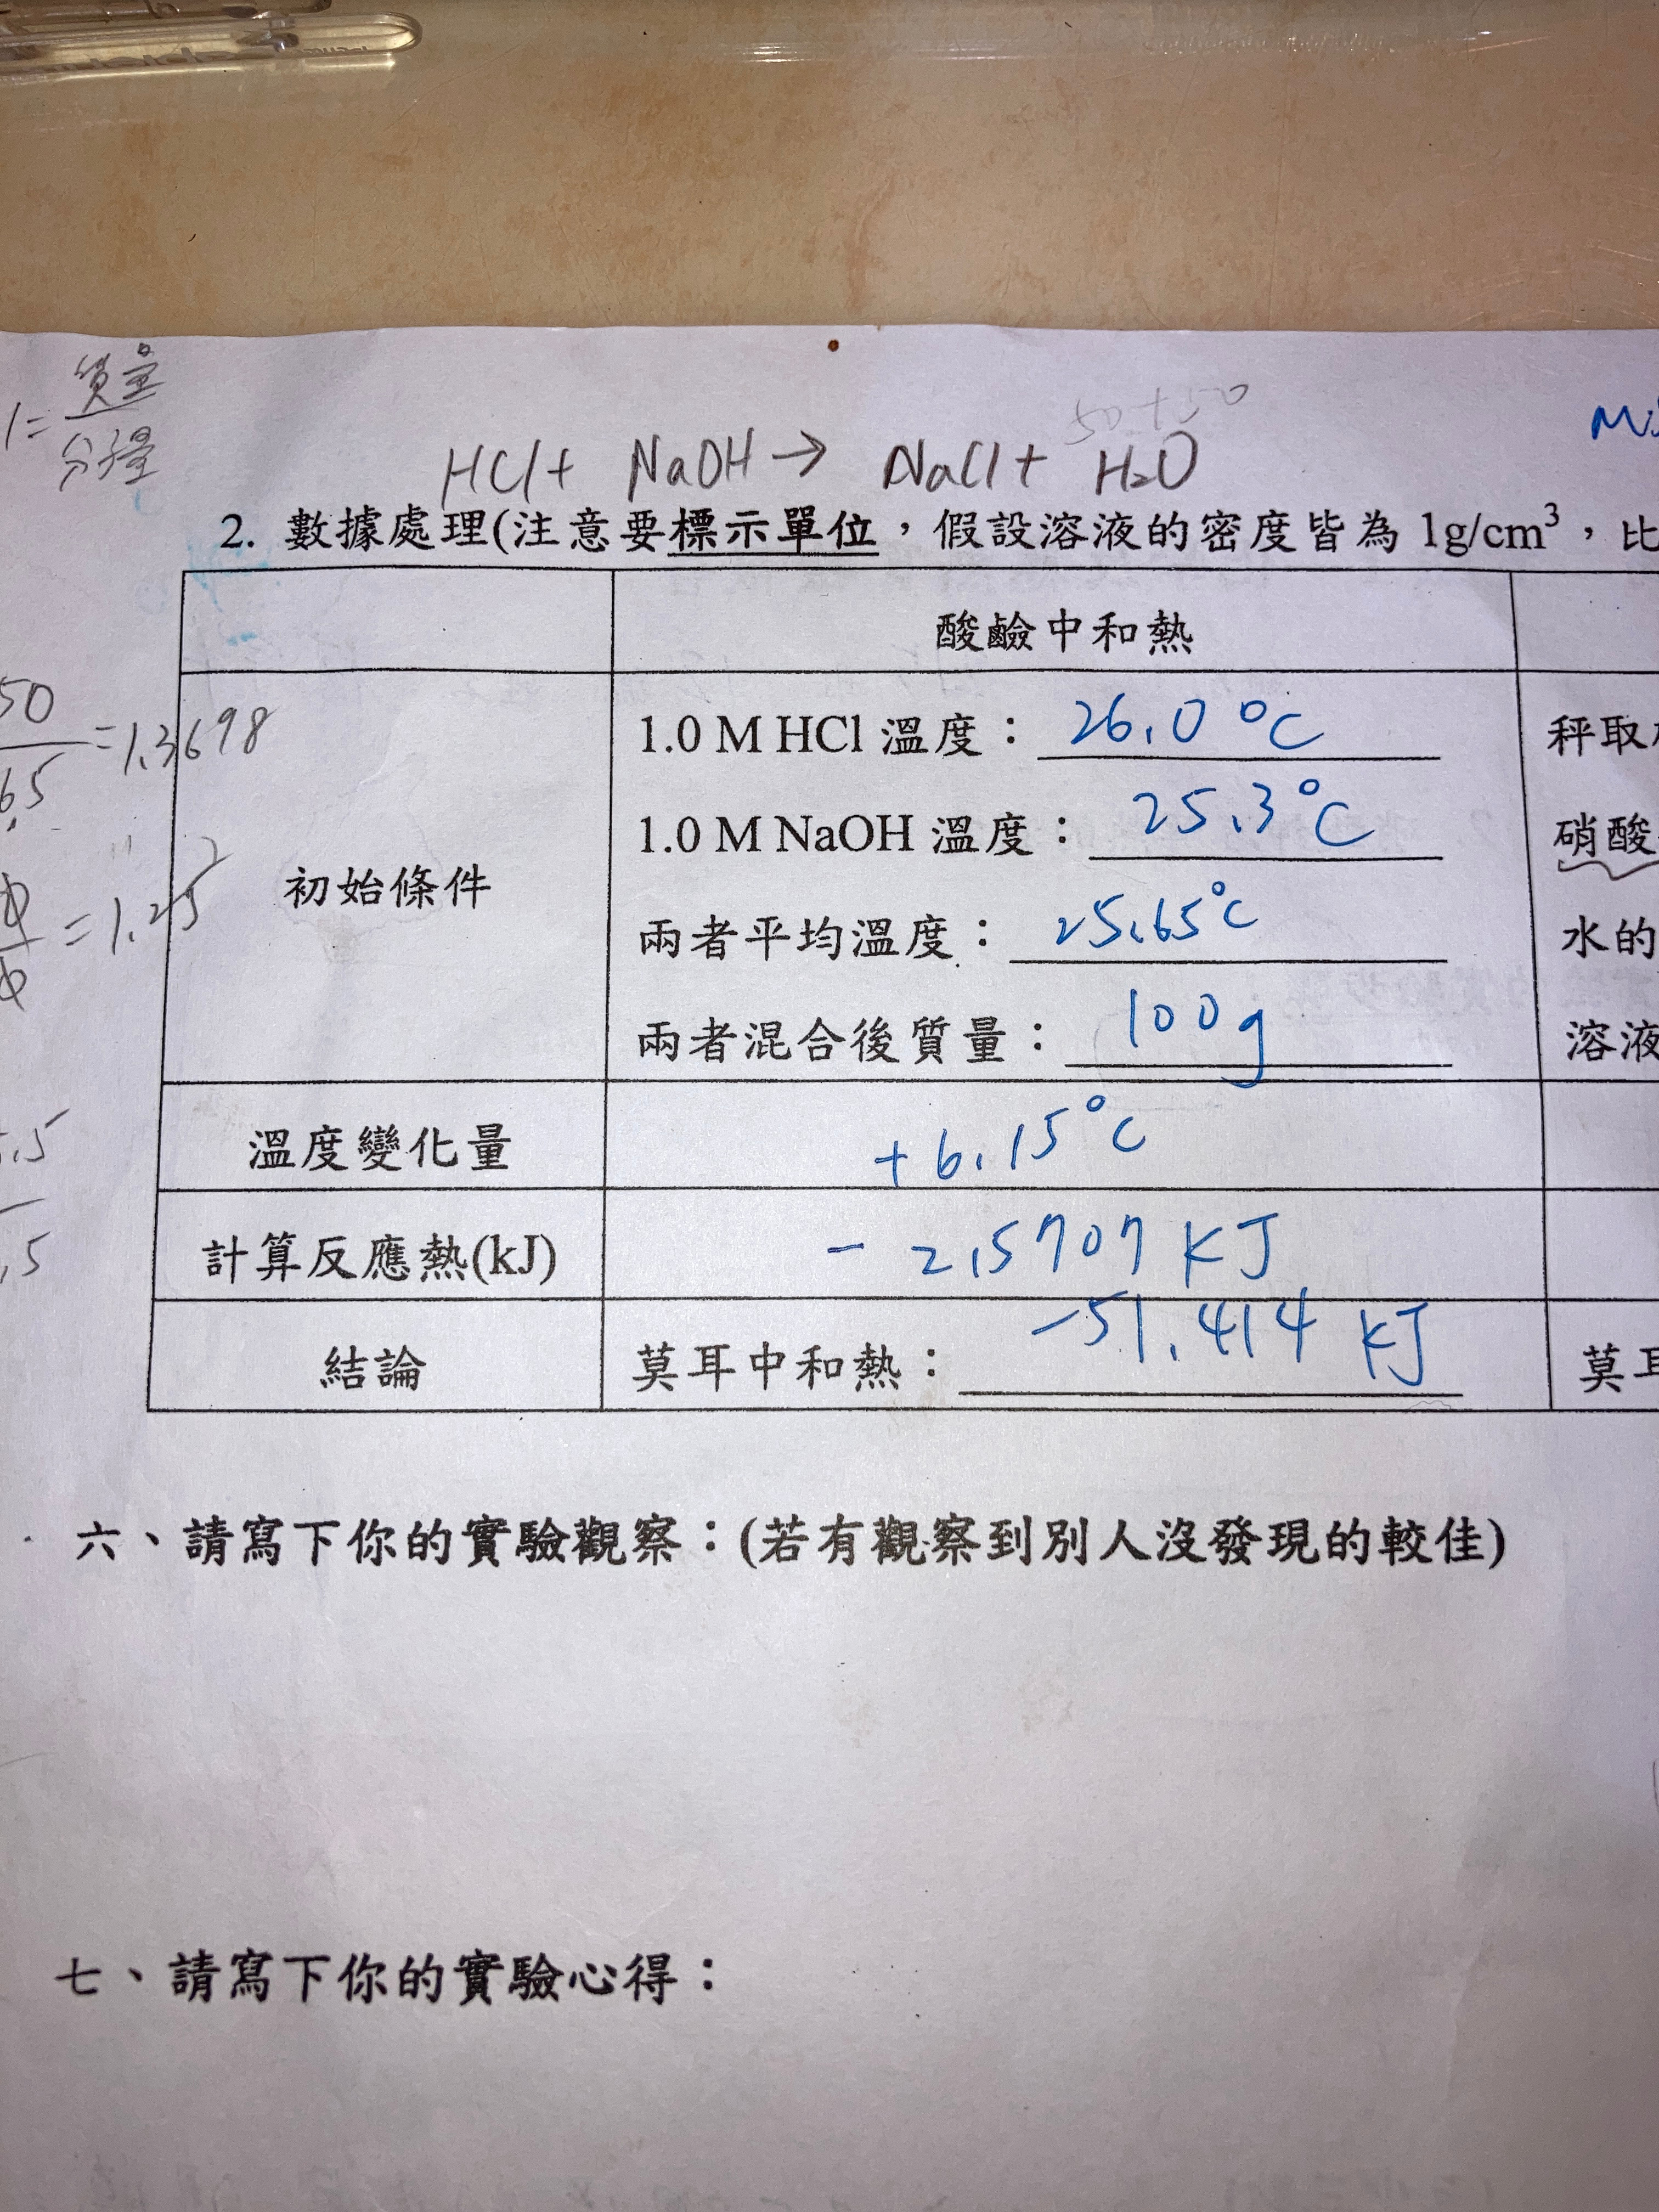 質量
1=
分子量
50+50
HCl + NaOH → NaCl + H₂O
2. 數據處理(注意要標示單位，假設溶液的密度皆為 1g/cm³，比
酸鹼中和熱
50
=1.3698
65
=1.25
初始條件
1.0 M HCl 溫度：26.0 °C
秤取
1.0 M NaOH 溫度：25.3°C
硝酸
兩者平均溫度：25.65°C
水的
兩者混合後質量：100g
溶液
溫度變化量 +6.15°C
計算反應熱(kJ) - 2.5707 KJ
結論 莫耳中和熱：-51.414 kJ
莫耳
六、請寫下你的實驗觀察：(若有觀察到別人沒發現的較佳)
七、請寫下你的實驗心得：